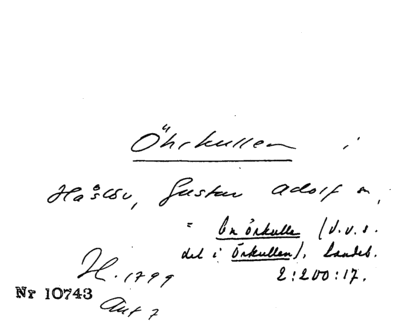 Öhrkullen i
Håslöv, Gustav Adolf n,
" En Örkulle (d.v.s.
del i Örkullen), Landeb.
H. 1799 2:200:17.
Nr 10743
Akt 7